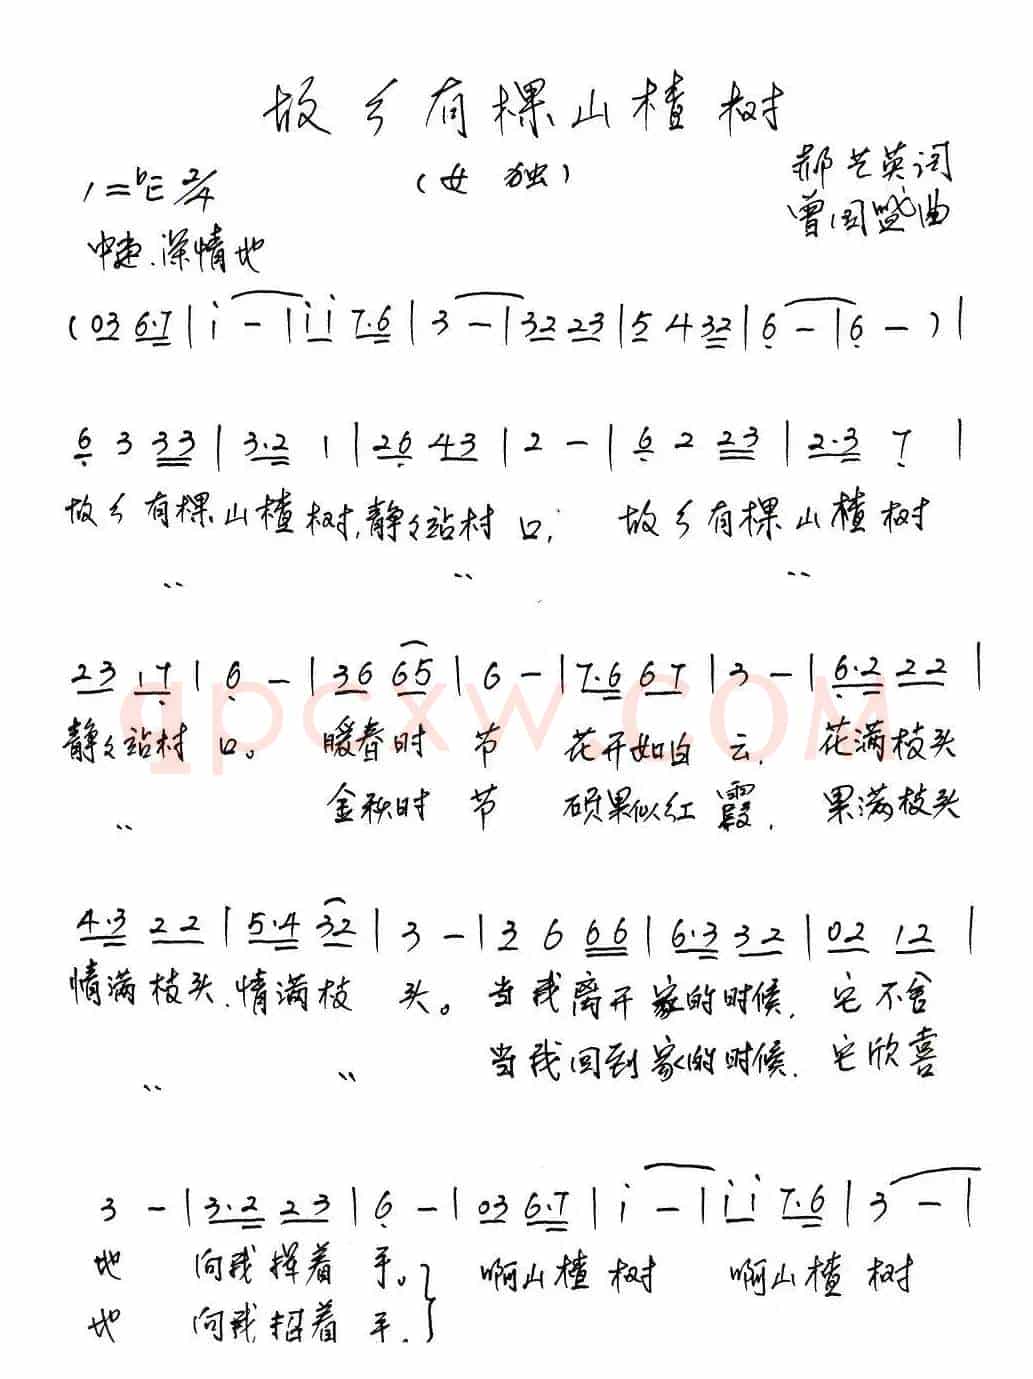 故乡有棵山楂树
(女 独)
郝艺英词
曾国盛曲
1=♭E 2/4
中速.深情地
(03 6·7|i -|i i 7·6|3 -|32 23|5 4 32|6 -|6 -)|
6 3 33|3·2 1|26 43|2 -|6 2 23|2·3 7|
故乡有棵山楂树,静々站村口; 故乡有棵山楂树
〃 〃 〃
23 17|6 -|36 65|6 -|7·6 67|3 -|6·2 22|
静々站村口。 暖春时节 花开如白云, 花满枝头
〃 金秋时节 硕果似红霞, 果满枝头
4·3 22|5·4 32|3 -|3 6 66|6·3 32|02 12|
情满枝头,情满枝 头。 当我离开家的时候, 它不舍
〃 〃 当我回到家的时候, 它欣喜
3 -|3·2 23|6 -|03 6·7|i -|i i 7·6|3 -|
地 向我挥着手。} 啊山楂树 啊山楂树
地 向我招着手.
qpcxw.COM